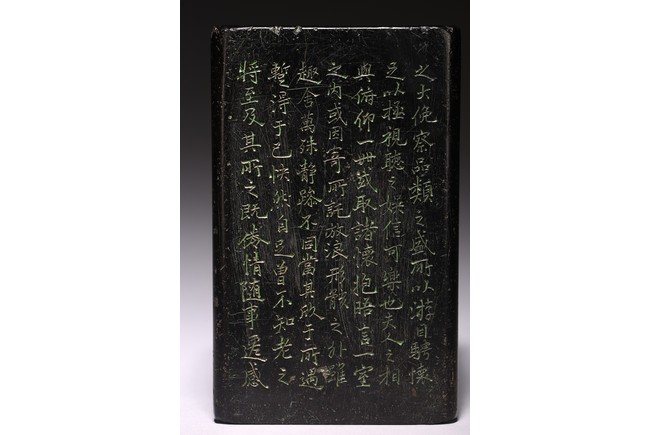 之大俛察品類之盛所以游目騁懷
足以極視聽之娛信可樂也夫人之相
與俯仰一世或取諸懷抱晤言一室
之內或因寄所託放浪形骸之外雖
趣舍萬殊靜躁不同當其欣于所遇
暫得于己怏然自足曾不知老之
將至及其所之既倦情隨事遷感